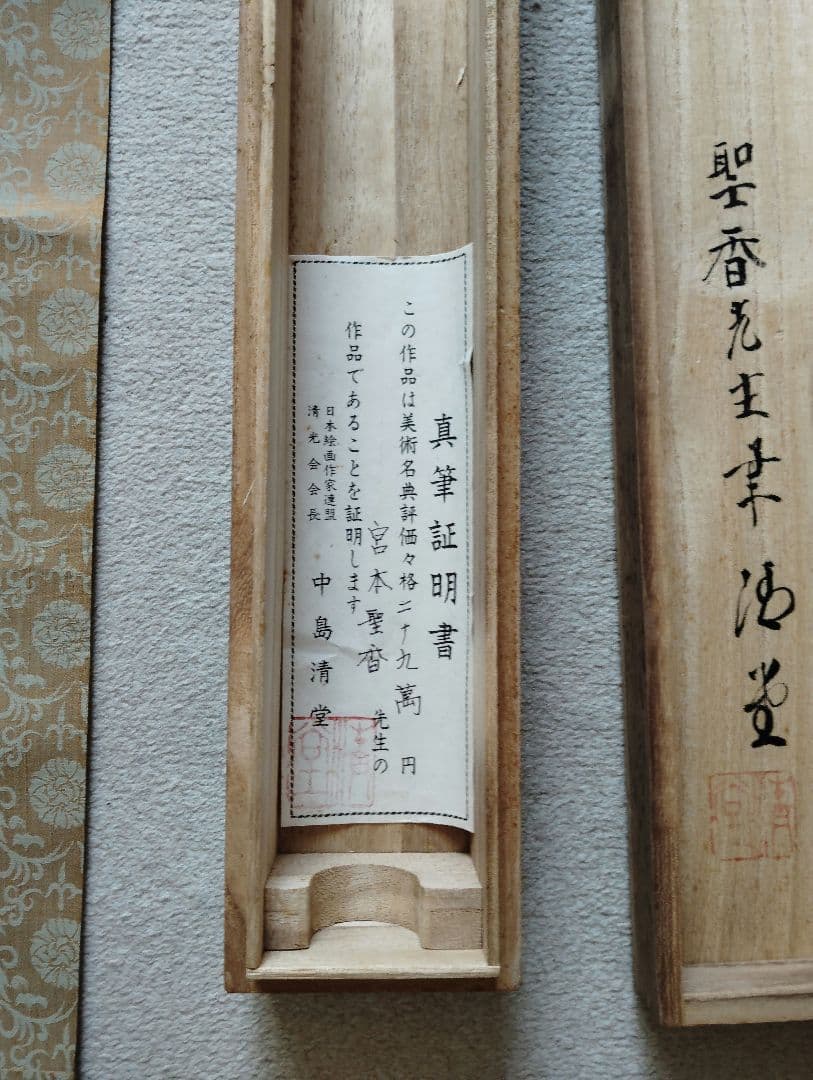 聖香先生 清堂
真筆証明書
この作品は美術名典評価々格二十九萬円
宮本聖香先生の
作品であることを証明します
日本絵画作家連盟
清光会会長
中島清堂